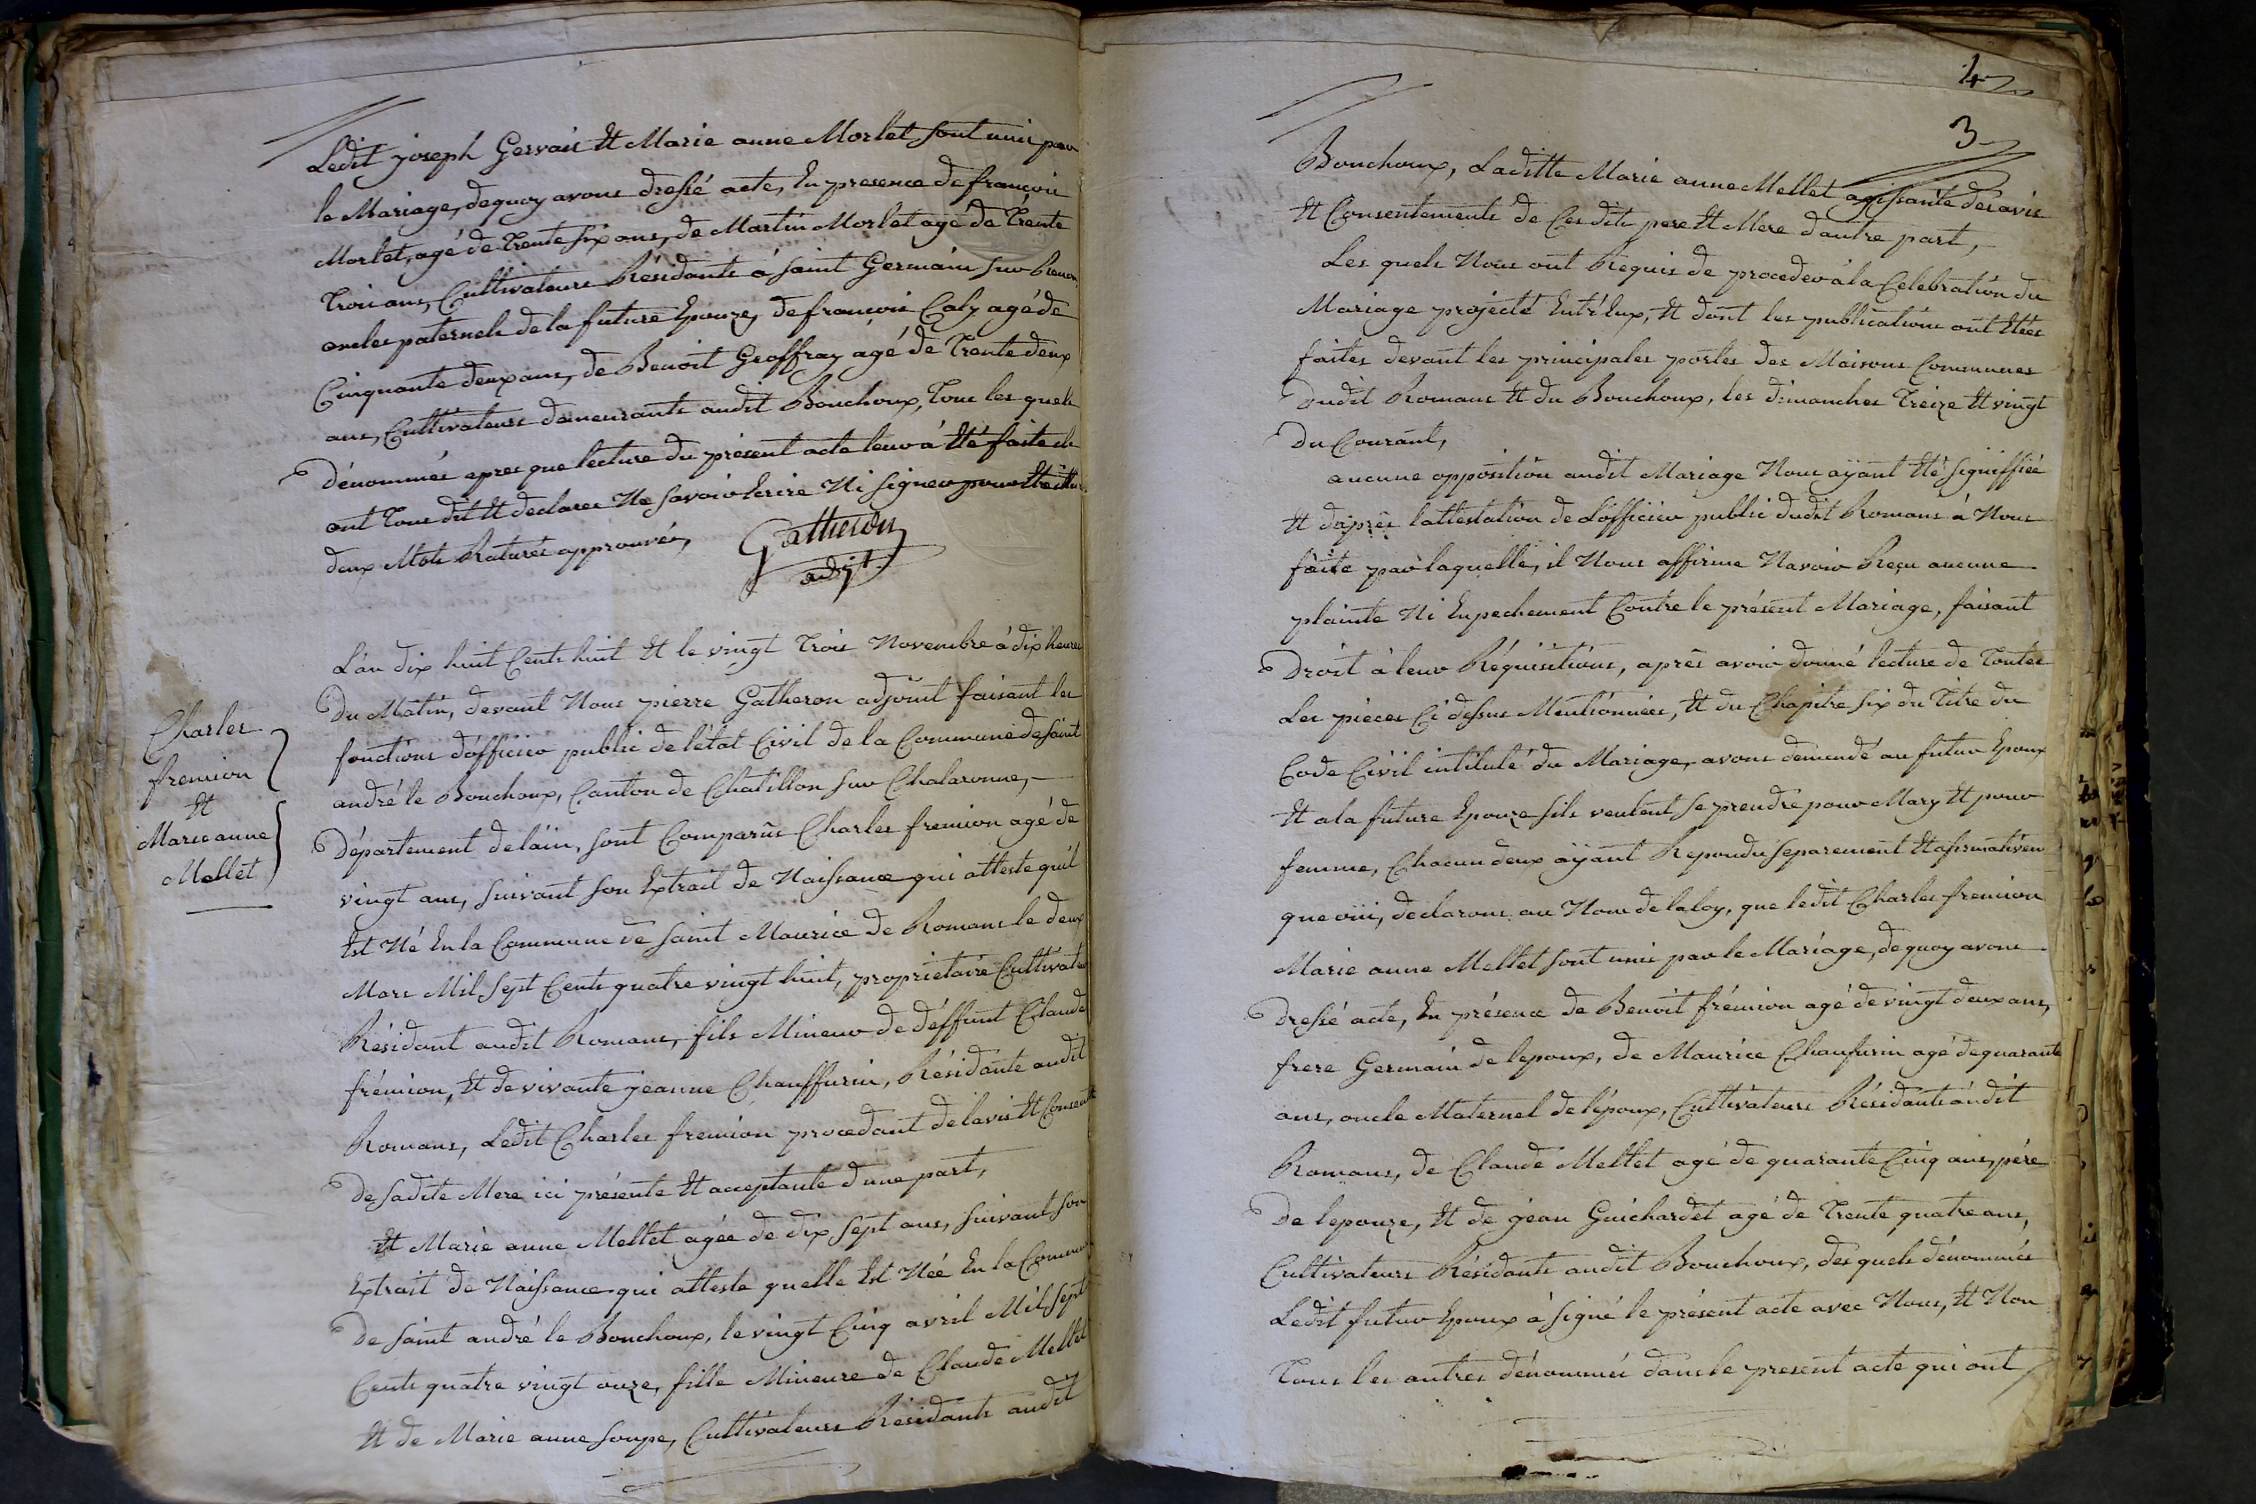 Ledit joseph Gervais Et Marie anne Morlet sont unis par
le Mariage, dequoy avons dressé acte, En presence de françois
Morlet, agé de Trente six ans, de Martin Morlet agé de Trente
Trois ans, Cultivateurs Résidants á saint Germain sur Renon
oncles paternels de la future Epouze, de françois Caly agé de
Cinquante deux ans, de Benoit Geoffray agé de Trente deux
ans, Cultivateurs demeurants audit Bouchoux, Tous les quels
dénommés apres que lecture du présent acte leur á Eté faite
ont Tous dit Et declarer Ne savoir Ecrire Ni signer
deux Mots Raturés approuvés,
Gatheron
adjt.
Charles
fremion
Et
Marie anne
Mellet
L'an dix huit Cents huit Et le vingt Trois Novembre á dix heures
Du Matin, devant Nous pierre Gatheron adjoint faisant les
fonctions d'officier public de l'état Civil de la Commune de saint
andré le Bouchoux, Canton de Chatillon sur Chalaronne,
Département de lain, sont Comparus Charles fremion agé de
vingt ans, suivant son Extrait de Naissance qui atteste quil
Est Né En la Commune de saint Maurice de Romans le deux
Mars Mil sept Cents quatre vingt huit, proprietaire Cultivateur
Résidant audit Romans, fils Mineur de deffunt Claude
frémion, Et de vivante jeanne Chauffurin, Résidante audit
Romans, Ledit Charles fremion procedant de lavis Et Consent
De sadite Mere ici présente Et acceptante d'une part,
Et Marie anne Mellet agée de dix sept ans, suivant son
Extrait de Naissance qui atteste quelle Est Née En la Commune
De saint andré le Bouchoux, le vingt Cinq avril Mil sept
Cents quatre vingt onze, fille Mineure de Claude Mellet
Et de Marie anne soupe, Cultivateurs Résidants audit
4
3
Bouchoux, Laditte Marie anne Mellet agissante des avis
Et Consentements de Ces dits pere Et Mere d'autre part,
Les quels Nous ont Requis de proceder á la Celebration du
Mariage projecté Entr'Eux, Et dont les publications ont Etées
faites devant les principales portes des Maisons Communes
Dudit Romans Et du Bouchoux, les dimanches Treize Et vingt
Du Courant,
aucune opposition audit Mariage Nous aÿant Eté signiffiée
Et d'après l'attestation de L'officier public dudit Romans á Nous
faite par laquelle, il Nous affirme Navoir Reçu aucune
plainte Ni Enpechement Contre le présent Mariage, faisant
Droit á leur Réquisitions, après avoir donné lecture de Toutes
Les pieces Ci dessus Mentionnées, Et du Chapitre six du Titre du
Code Civil intitulé du Mariage, avons demendé au futur Epoux
Et a la future Epouze sils veulent se prendre pour Mary Et pour
femme, Chacun deux aÿant Repondu separement Et afirmativem
que oüi, declarons au Nom de la loy, que ledit Charles fremion
Marie anne Mellet sont unis par le Mariage, dequoy avons
Dressé acte, En présence de Benoit frémion agé de vingt deux ans,
frere Germain de lepoux, de Maurice Chaufurin agé de quarante
ans, oncle Maternel de l'époux, Cultivateurs Résidants audit
Romans, de Claude Mellet agé de quarante Cinq ans, pére
De lepouze, Et de jean Guichardet agé de Trente quatre ans,
Cultivateurs Résidants audit Bouchoux, des quels dénommés
Ledit futur Epoux á signé le présent acte avec Nous, Et Non
Tous les autres dénommés dans le present acte qui ont